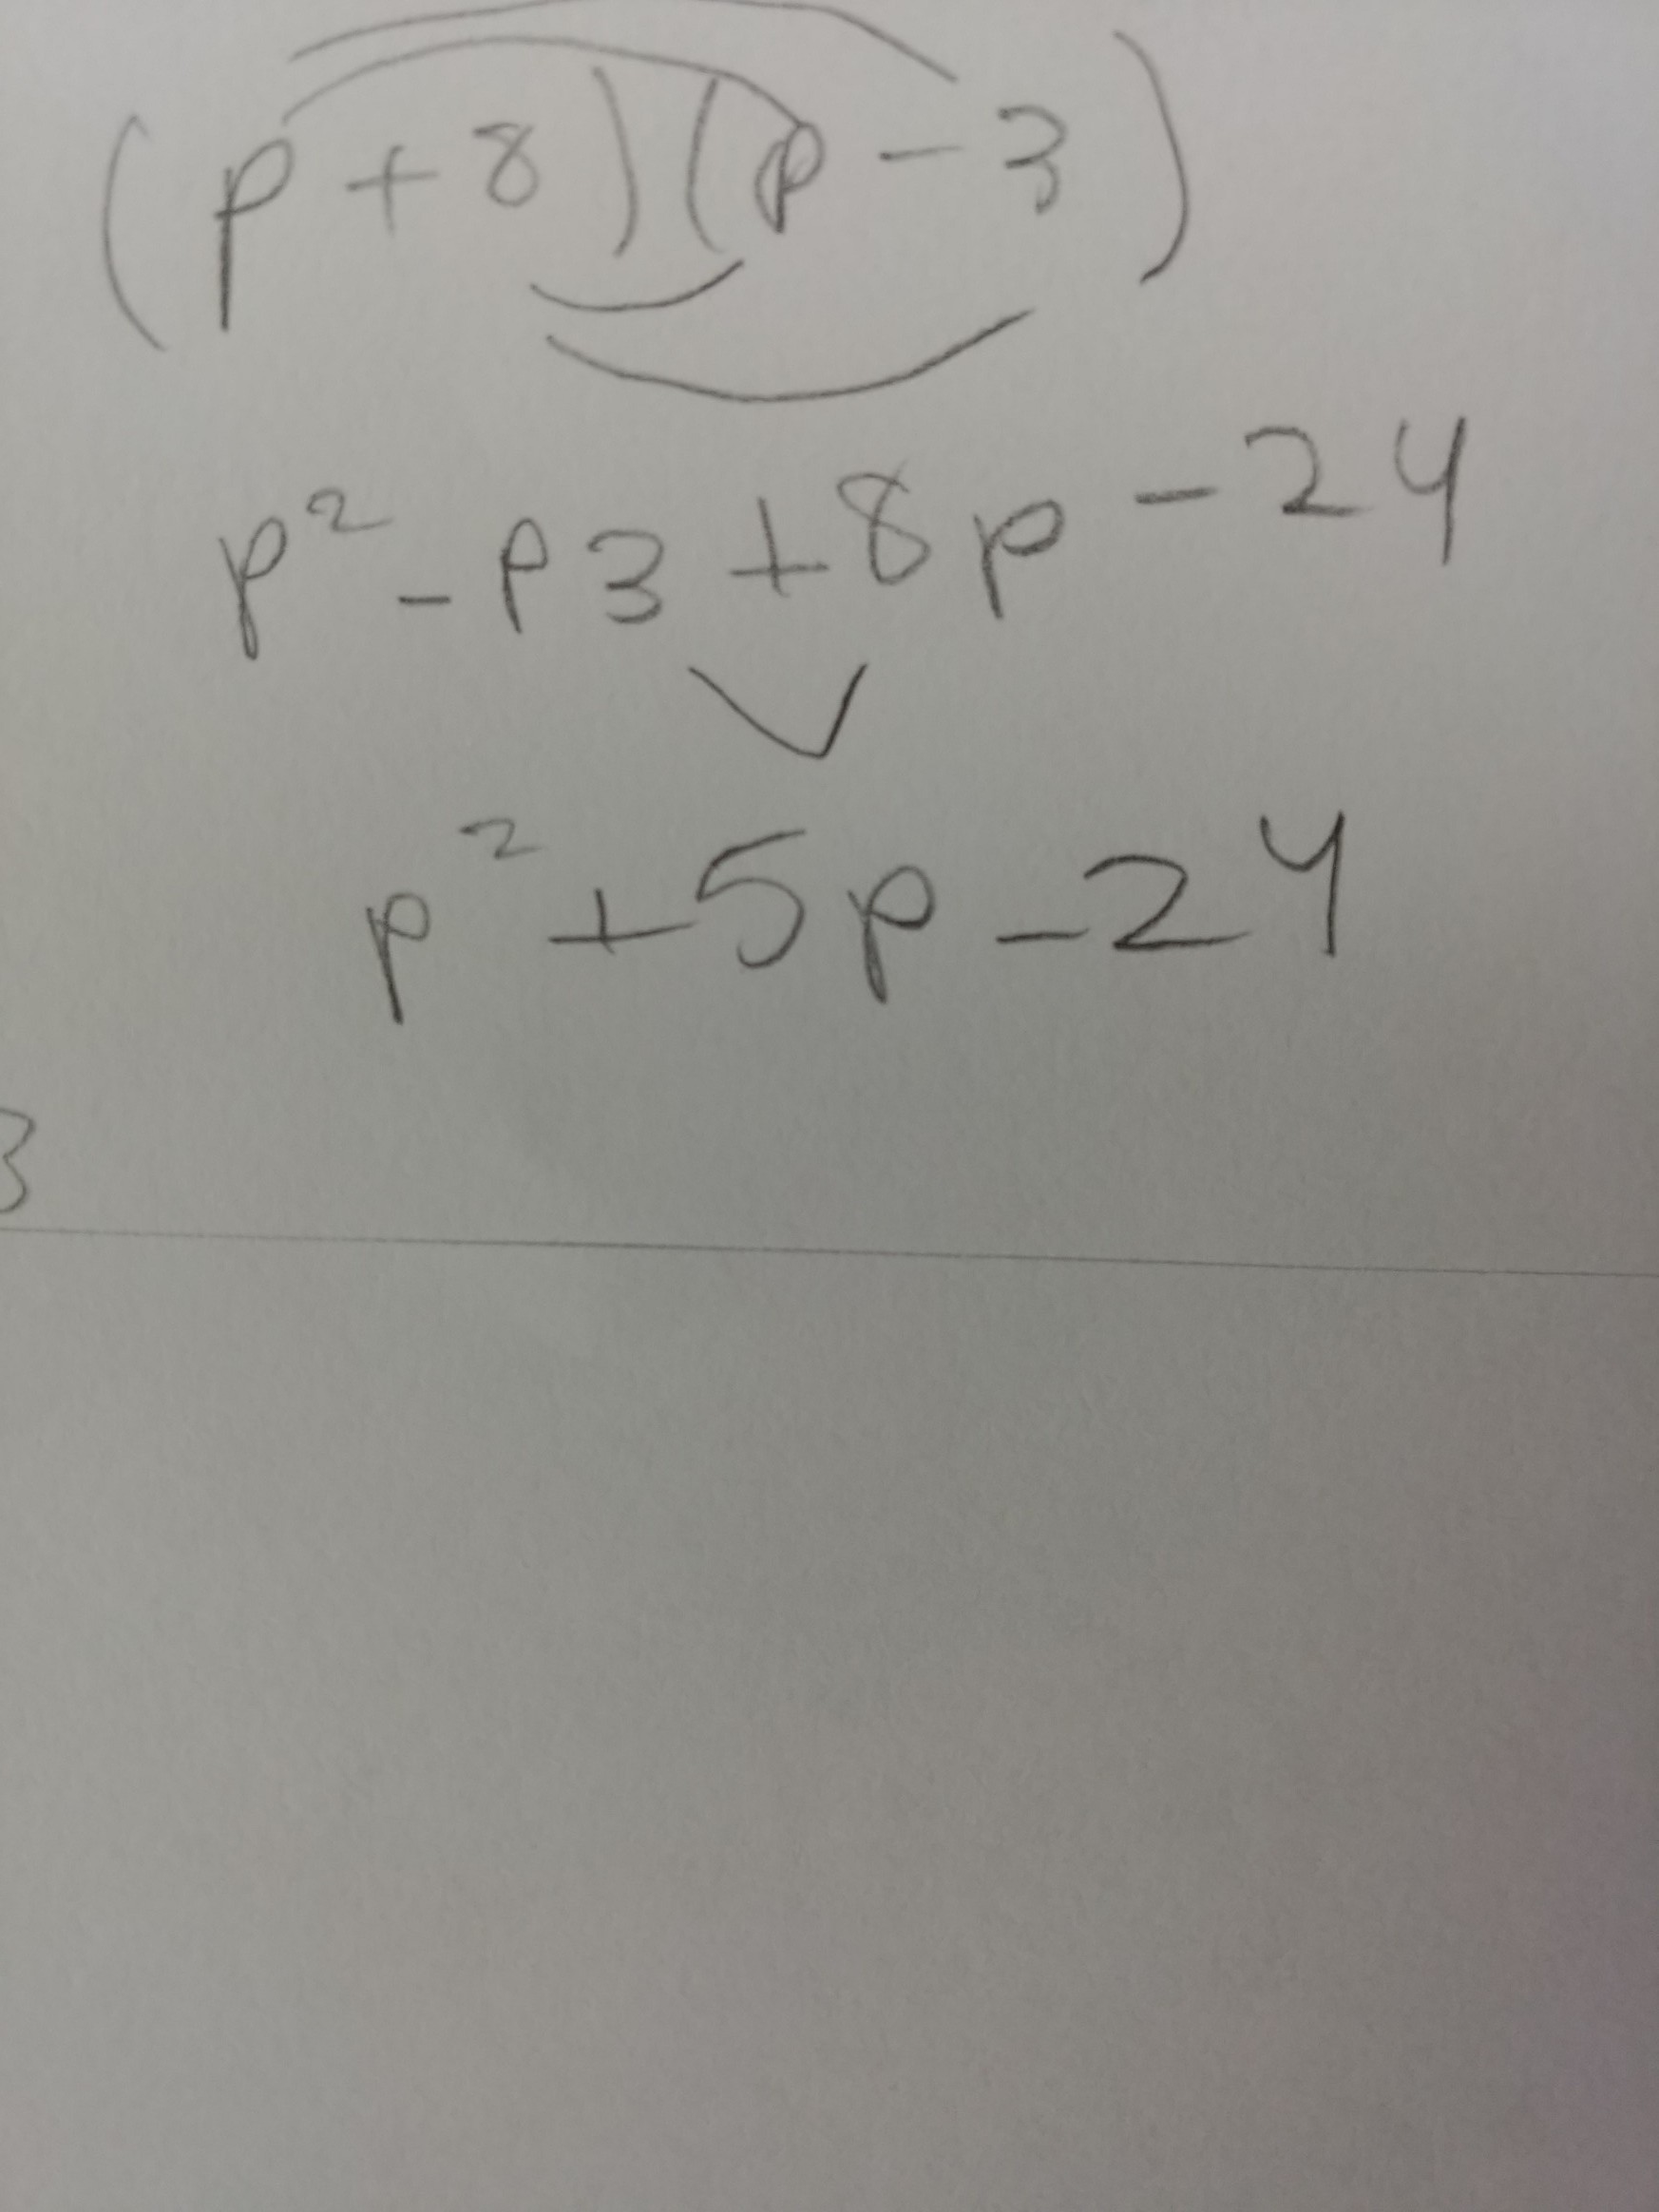 (p + 8)(p - 3)
p² - p3 + 8p - 24
p² + 5p - 24
3